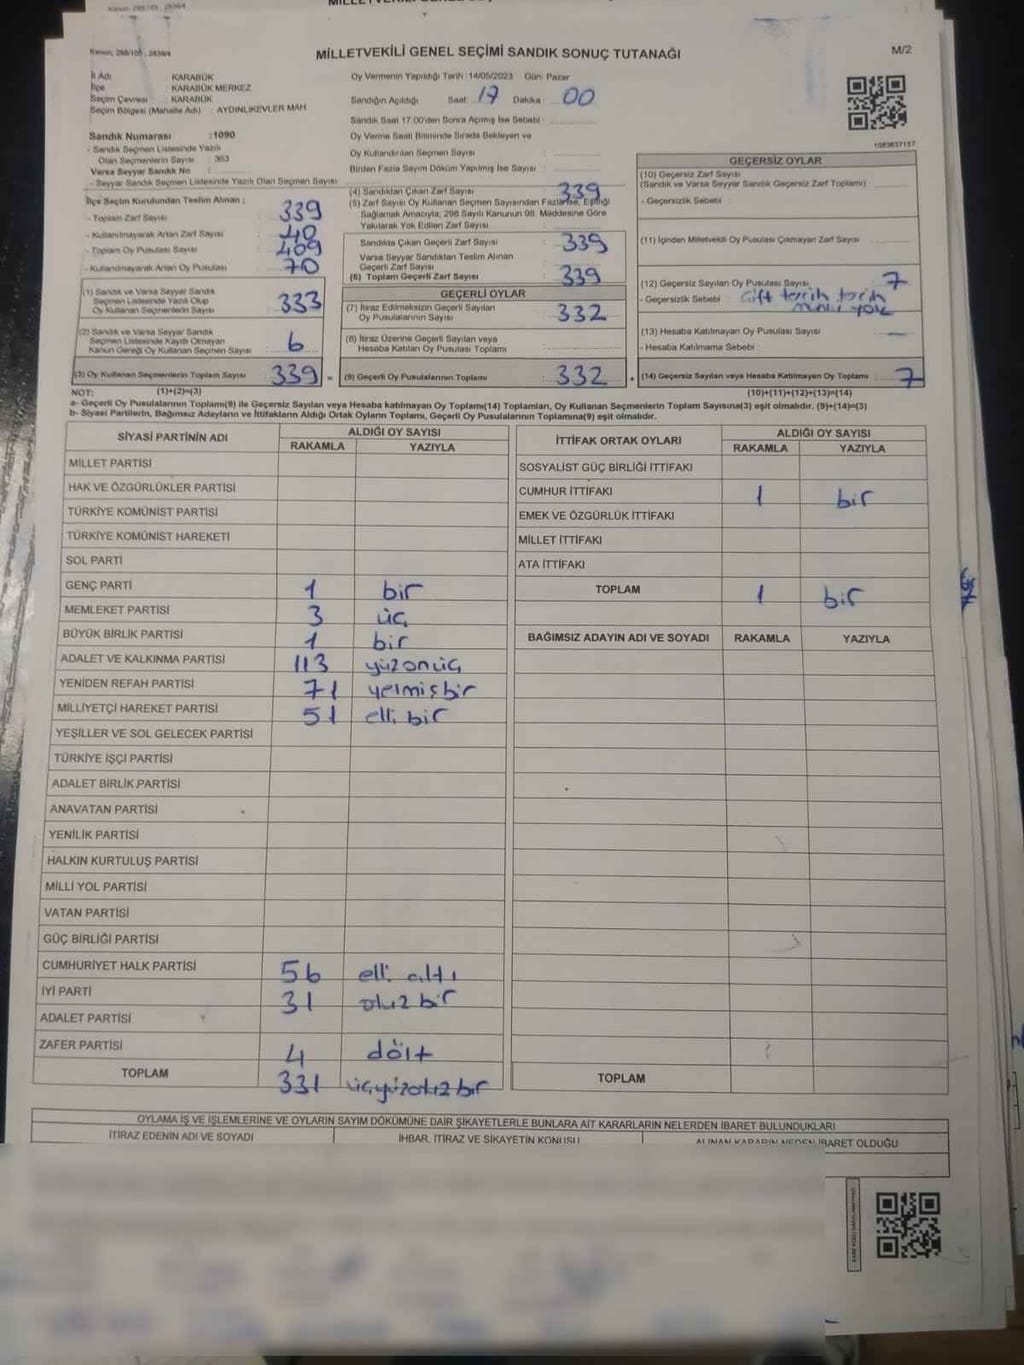 MİLLETVEKİLİ GENEL SEÇİMİ SANDIK SONUÇ TUTANAĞI
M/2
İl Adı : KARABÜK
İlçe : KARABÜK MERKEZ
Seçim Çevresi : KARABÜK
Seçim Bölgesi (Mahalle Adı) : AYDINLIKEVLER MAH.
Oy Vermenin Yapıldığı Tarih : 14/05/2023 Gün: Pazar
Sandığın Açıldığı Saat: 17 Dakika: 00
Sandık Saat 17.00'den Sonra Açılmış İse Sebebi :
Oy Verme Saati Bitiminde Sırada Bekleyen ve
Oy Kullandırılan Seçmen Sayısı
Birden Fazla Sayım Döküm Yapılmış İse Sayısı :
1083637157
Sandık Numarası : 1090
- Sandık Seçmen Listesinde Yazılı
Olan Seçmenlerin Sayısı : 363
Varsa Seyyar Sandık No
- Seyyar Sandık Seçmen Listesinde Yazılı Olan Seçmen Sayısı :
İlçe Seçim Kurulundan Teslim Alınan ;
- Toplam Zarf Sayısı 339
- Kullanılmayarak Artan Zarf Sayısı 40
- Toplam Oy Pusulası Sayısı 409
- Kullanılmayarak Artan Oy Pusulası 70
(1) Sandık ve Varsa Seyyar Sandık
Seçmen Listesinde Yazılı Olup
Oy Kullanan Seçmenlerin Sayısı 333
(2) Sandık ve Varsa Seyyar Sandık
Seçmen Listesinde Kayıtlı Olmayan
Kanun Gereği Oy Kullanan Seçmen Sayısı 6
(3) Oy Kullanan Seçmenlerin Toplam Sayısı 339 =
(4) Sandıktan Çıkan Zarf Sayısı 339
(5) Zarf Sayısı Oy Kullanan Seçmen Sayısından Fazla İse, Eşitliği
Sağlamak Amacıyla; 298 Sayılı Kanunun 98. Maddesine Göre
Yakılarak Yok Edilen Zarf Sayısı
Sandıkta Çıkan Geçerli Zarf Sayısı 339
Varsa Seyyar Sandıktan Teslim Alınan
Geçerli Zarf Sayısı
(6) Toplam Geçerli Zarf Sayısı 339
GEÇERLİ OYLAR
(7) İtiraz Edilmeksizin Geçerli Sayılan
Oy Pusulalarının Sayısı 332
(8) İtiraz Üzerine Geçerli Sayılan veya
Hesaba Katılan Oy Pusulası Toplamı
(9) Geçerli Oy Pusulalarının Toplamı 332 +
GEÇERSİZ OYLAR
(10) Geçersiz Zarf Sayısı
(Sandık ve Varsa Seyyar Sandık Geçersiz Zarf Toplamı)
- Geçersizlik Sebebi :
(11) İçinden Milletvekili Oy Pusulası Çıkmayan Zarf Sayısı
(12) Geçersiz Sayılan Oy Pusulası Sayısı 7
- Geçersizlik Sebebi : Çift tercih tercih
mührü yok
(13) Hesaba Katılmayan Oy Pusulası Sayısı —
- Hesaba Katılmama Sebebi :
(14) Geçersiz Sayılan veya Hesaba Katılmayan Oy Toplamı 7
NOT: (1)+(2)=(3) (10)+(11)+(12)+(13)=(14)
a- Geçerli Oy Pusulalarının Toplamı(9) ile Geçersiz Sayılan veya Hesaba katılmayan Oy Toplam(14) Toplamları, Oy Kullanan Seçmenlerin Toplam Sayısına(3) eşit olmalıdır. (9)+(14)=(3)
b- Siyasi Partilerin, Bağımsız Adayların ve İttifakların Aldığı Ortak Oyların Toplamı, Geçerli Oy Pusulalarının Toplamına(9) eşit olmalıdır.
SİYASİ PARTİNİN ADI
ALDIĞI OY SAYISI
RAKAMLA YAZIYLA
MİLLET PARTİSİ
HAK VE ÖZGÜRLÜKLER PARTİSİ
TÜRKİYE KOMÜNİST PARTİSİ
TÜRKİYE KOMÜNİST HAREKETİ
SOL PARTİ
GENÇ PARTİ 1 bir
MEMLEKET PARTİSİ 3 üç
BÜYÜK BİRLİK PARTİSİ 1 bir
ADALET VE KALKINMA PARTİSİ 113 yüzonüç
YENİDEN REFAH PARTİSİ 71 yetmişbir
MİLLİYETÇİ HAREKET PARTİSİ 51 elli bir
YEŞİLLER VE SOL GELECEK PARTİSİ
TÜRKİYE İŞÇİ PARTİSİ
ADALET BİRLİK PARTİSİ
ANAVATAN PARTİSİ
YENİLİK PARTİSİ
HALKIN KURTULUŞ PARTİSİ
MİLLİ YOL PARTİSİ
VATAN PARTİSİ
GÜÇ BİRLİĞİ PARTİSİ
CUMHURİYET HALK PARTİSİ 56 elli altı
İYİ PARTİ 31 otuz bir
ADALET PARTİSİ
ZAFER PARTİSİ 4 dört
TOPLAM 331 üçyüzotuz bir
İTTİFAK ORTAK OYLARI
ALDIĞI OY SAYISI
RAKAMLA YAZIYLA
SOSYALİST GÜÇ BİRLİĞİ İTTİFAKI
CUMHUR İTTİFAKI 1 bir
EMEK VE ÖZGÜRLÜK İTTİFAKI
MİLLET İTTİFAKI
ATA İTTİFAKI
TOPLAM 1 bir
BAĞIMSIZ ADAYIN ADI VE SOYADI RAKAMLA YAZIYLA
TOPLAM
OYLAMA İŞ VE İŞLEMLERİNE VE OYLARIN SAYIM DÖKÜMÜNE DAİR ŞİKAYETLERLE BUNLARA AİT KARARLARIN NELERDEN İBARET BULUNDUKLARI
İTİRAZ EDENİN ADI VE SOYADI
İHBAR, İTİRAZ VE ŞİKAYETİN KONUSU
ALINAN KARARIN NEDEN İBARET OLDUĞU